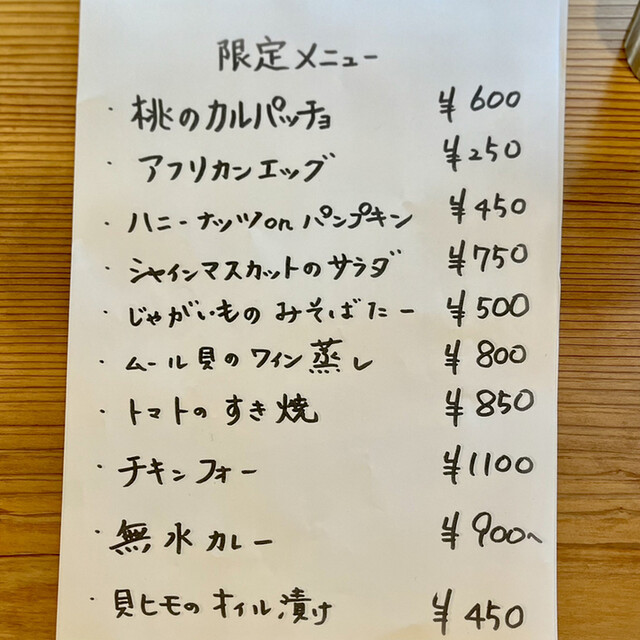 限定メニュー
・桃のカルパッチョ ¥600
・アフリカンエッグ ¥250
・ハニーナッツonパンプキン ¥450
・シャインマスカットのサラダ ¥750
・じゃがいものみそばたー ¥500
・ムール貝のワイン蒸し ¥800
・トマトのすき焼 ¥850
・チキンフォー ¥1100
・無水カレー ¥900〜
・貝ヒモのオイル漬け ¥450